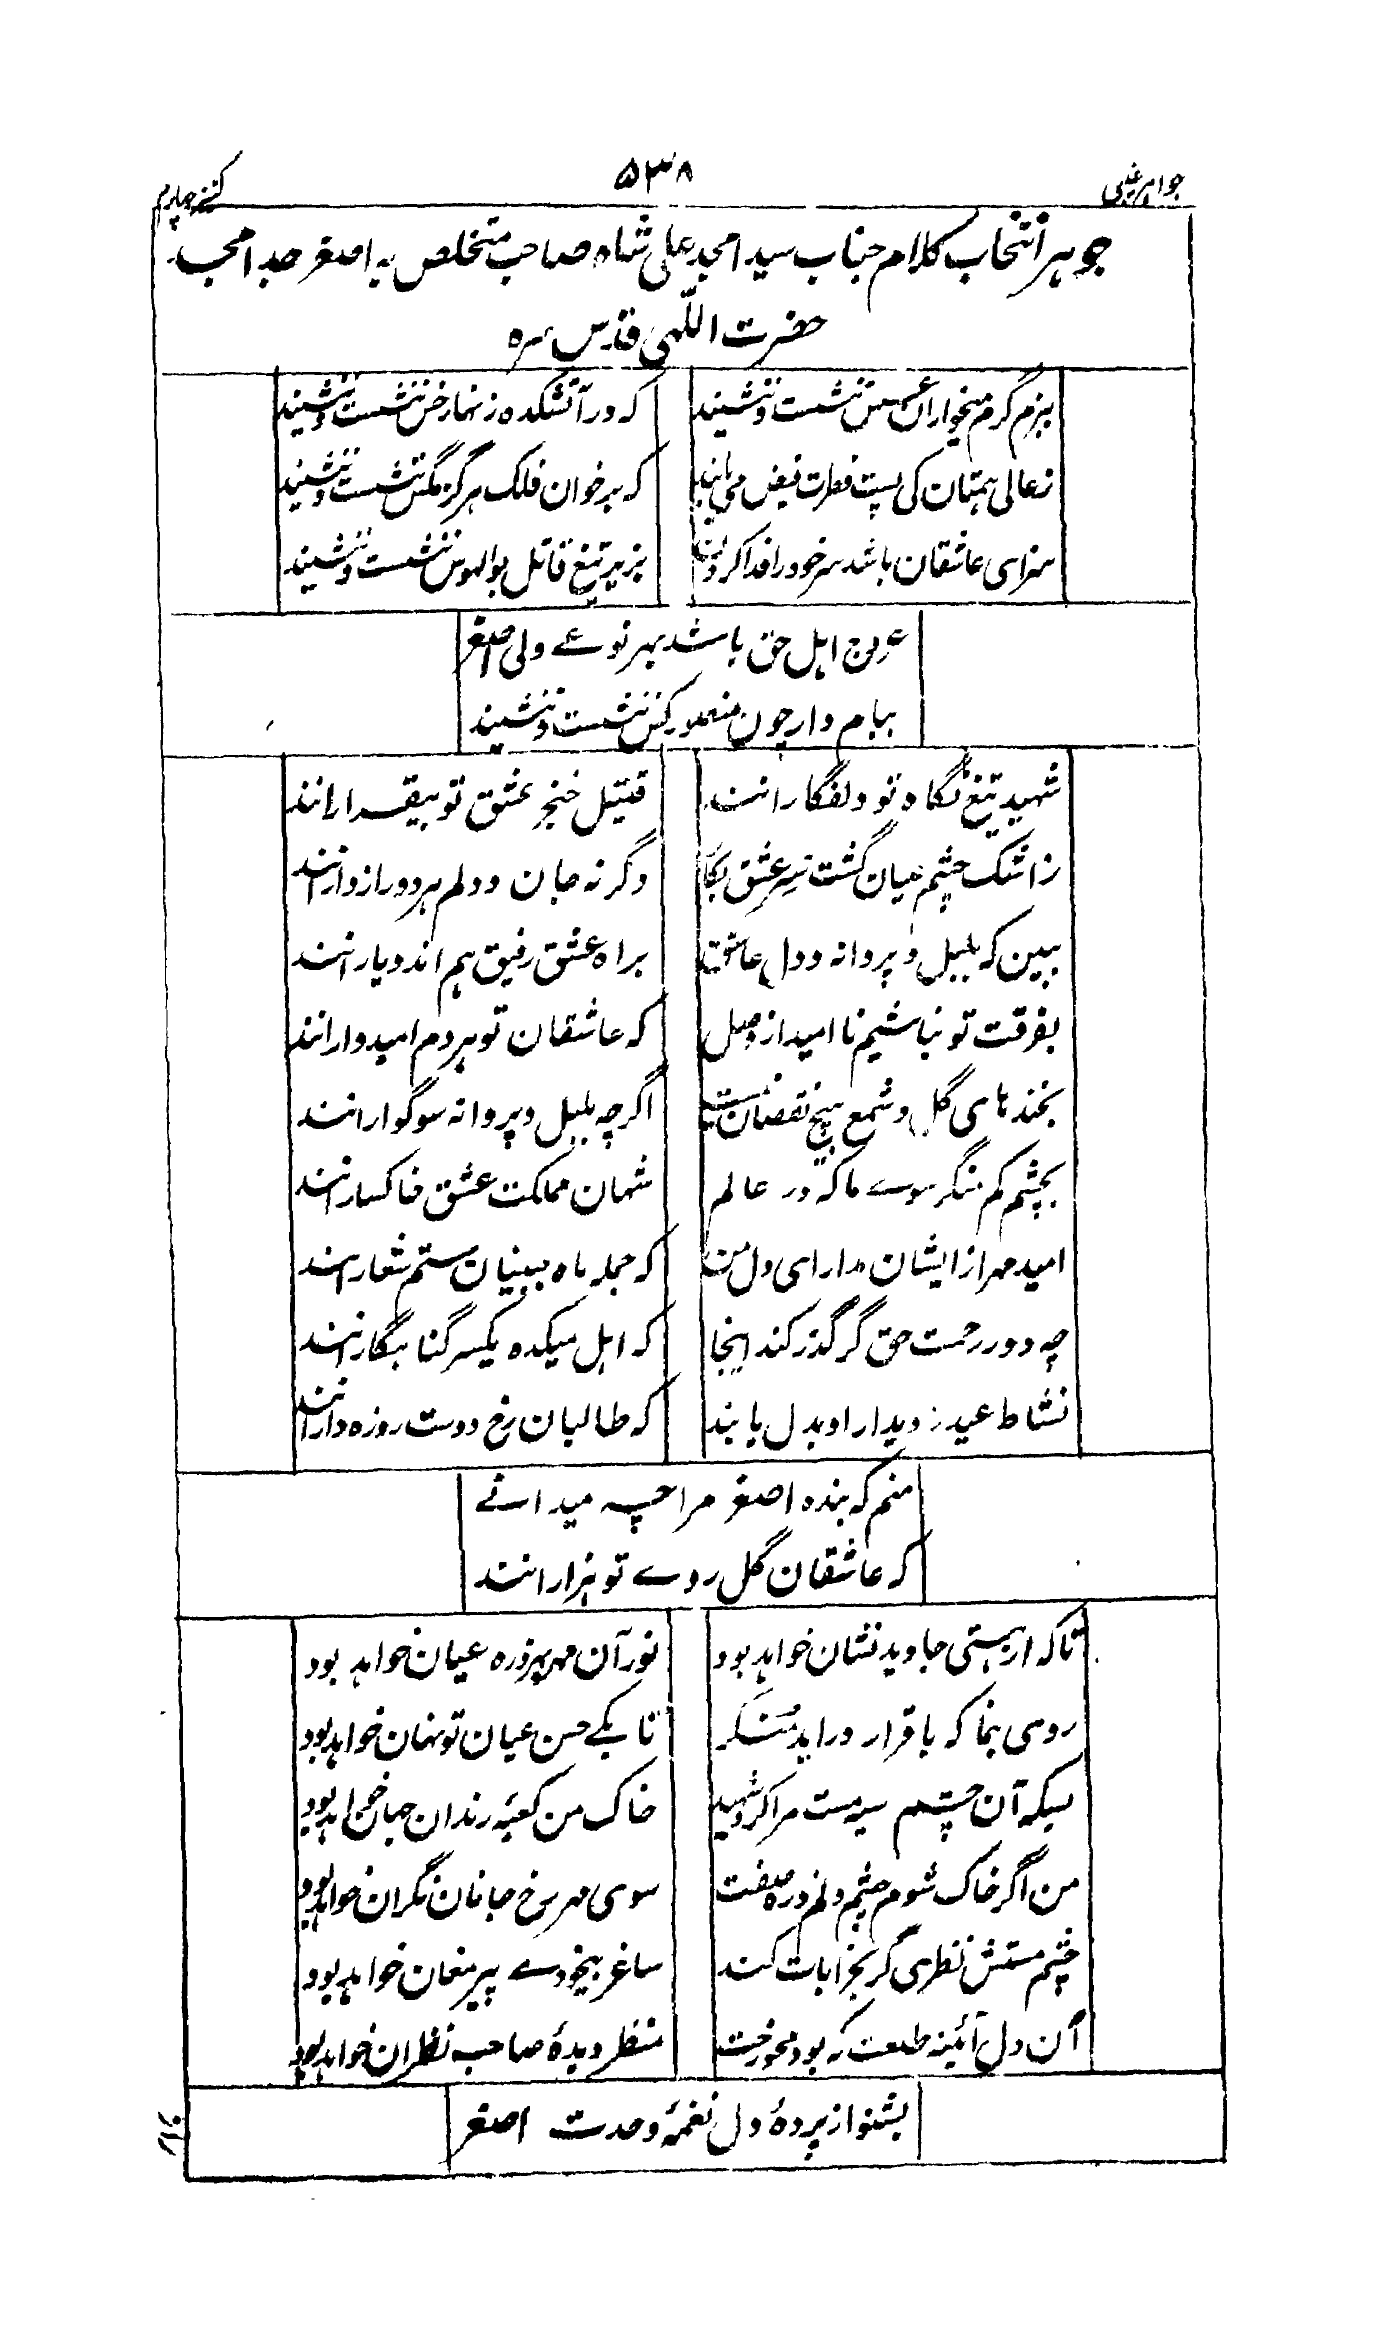 جواهر غیبی
۵۳۸
کنز چهارم
جوهر انتخاب کلام جناب سید امجد علی شاه صاحب متخلص به اصغر جد امجد
حضرت اللهی قدس سره
ببزم گرم میخواران عسس ننشست و ننشیند
که در آتشکده زنهار خس ننشست و ننشیند
ز عالی همتان کی پست فطرت فیض می یابد
که بر خوان فلک هرگز مگس ننشست و ننشیند
سزای عاشقان باشد سر خود را فدا کردن
بزیر تیغ قاتل بوالهوس ننشست و ننشیند
عروج اهل حق باشد بهر نوعے ولی اصغر
ببام دار چون منصور کس ننشست و ننشیند
شهید تیغ نگاه تو دلفگارانند
قتیل خنجر عشق تو بیقرارانند
ز اشک چشم عیان گشت سر عشق
وگرنه جان و دلم هر دو رازدارانند
ببین که بلبل و پروانه و دل عاشق
براه عشق رفیق هم اند و یارانند
بفرقت تو نباشیم نا امید از وصل
که عاشقان تو هر دم امیدوارانند
بخندهای گل و شمع هیچ نقصان نیست
اگرچه بلبل و پروانه سوگوارانند
بچشم کم منگر سوے ما که در عالم
شهان مملکت عشق خاکسارانند
امید مهر از ایشان مدار ای دل من
که جمله ماه جبینان ستم شعارانند
چه دور رحمت حق گر گذر کند اینجا
که اهل میکده یکسر گناہگارانند
نشاط عید ز دیدار او بدل یابند
که طالبان رخ دوست روزه دارانند
منم که بنده اصغر مرا چه میدانے
که عاشقان گل روے تو هزارانند
تا که از هستی جاوید نشان خواهد بود
نور آن مهر بهر ذره عیان خواهد بود
روی بنما که باقرار در اید منکر
تا بکے حسن عیان تو نهان خواهد بود
بسکه آن چشم سیه مست مرا کرد شهید
خاک من کعبۂ رندان جهان خواهد بود
من اگر خاک شوم چشم دلم ذره صفت
سوی مهر رخ جانان نگران خواهد بود
چشم مستش نظری گر بخرابات کند
ساغر بیخودے پیر مغان خواهد بود
آن دل آئینه طلعت که بود محو رخت
منظر دیدۂ صاحب نظران خواهد بود
بشنو از پردۂ دل نغمۂ وحدت اصغر